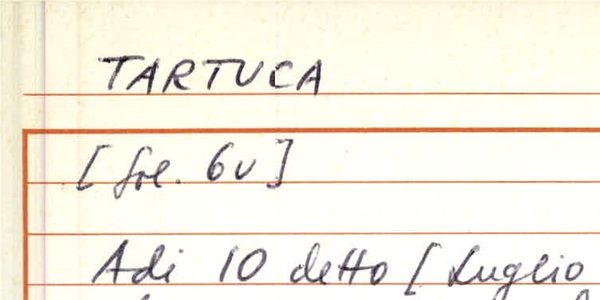 TARTUCA
[fol. 6v]
Adi 10 detto [Luglio